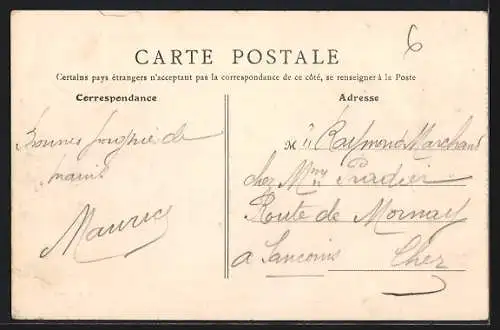 6
CARTE POSTALE
Certains pays étrangers n'acceptant pas la correspondance de ce côté, se renseigner à la Poste
Correspondance
Bonnes poignée de
mains
Maurice
Adresse
M. Raymond Marchand
chez Mme Pradier
Route de Mornay
a Sancoins Cher